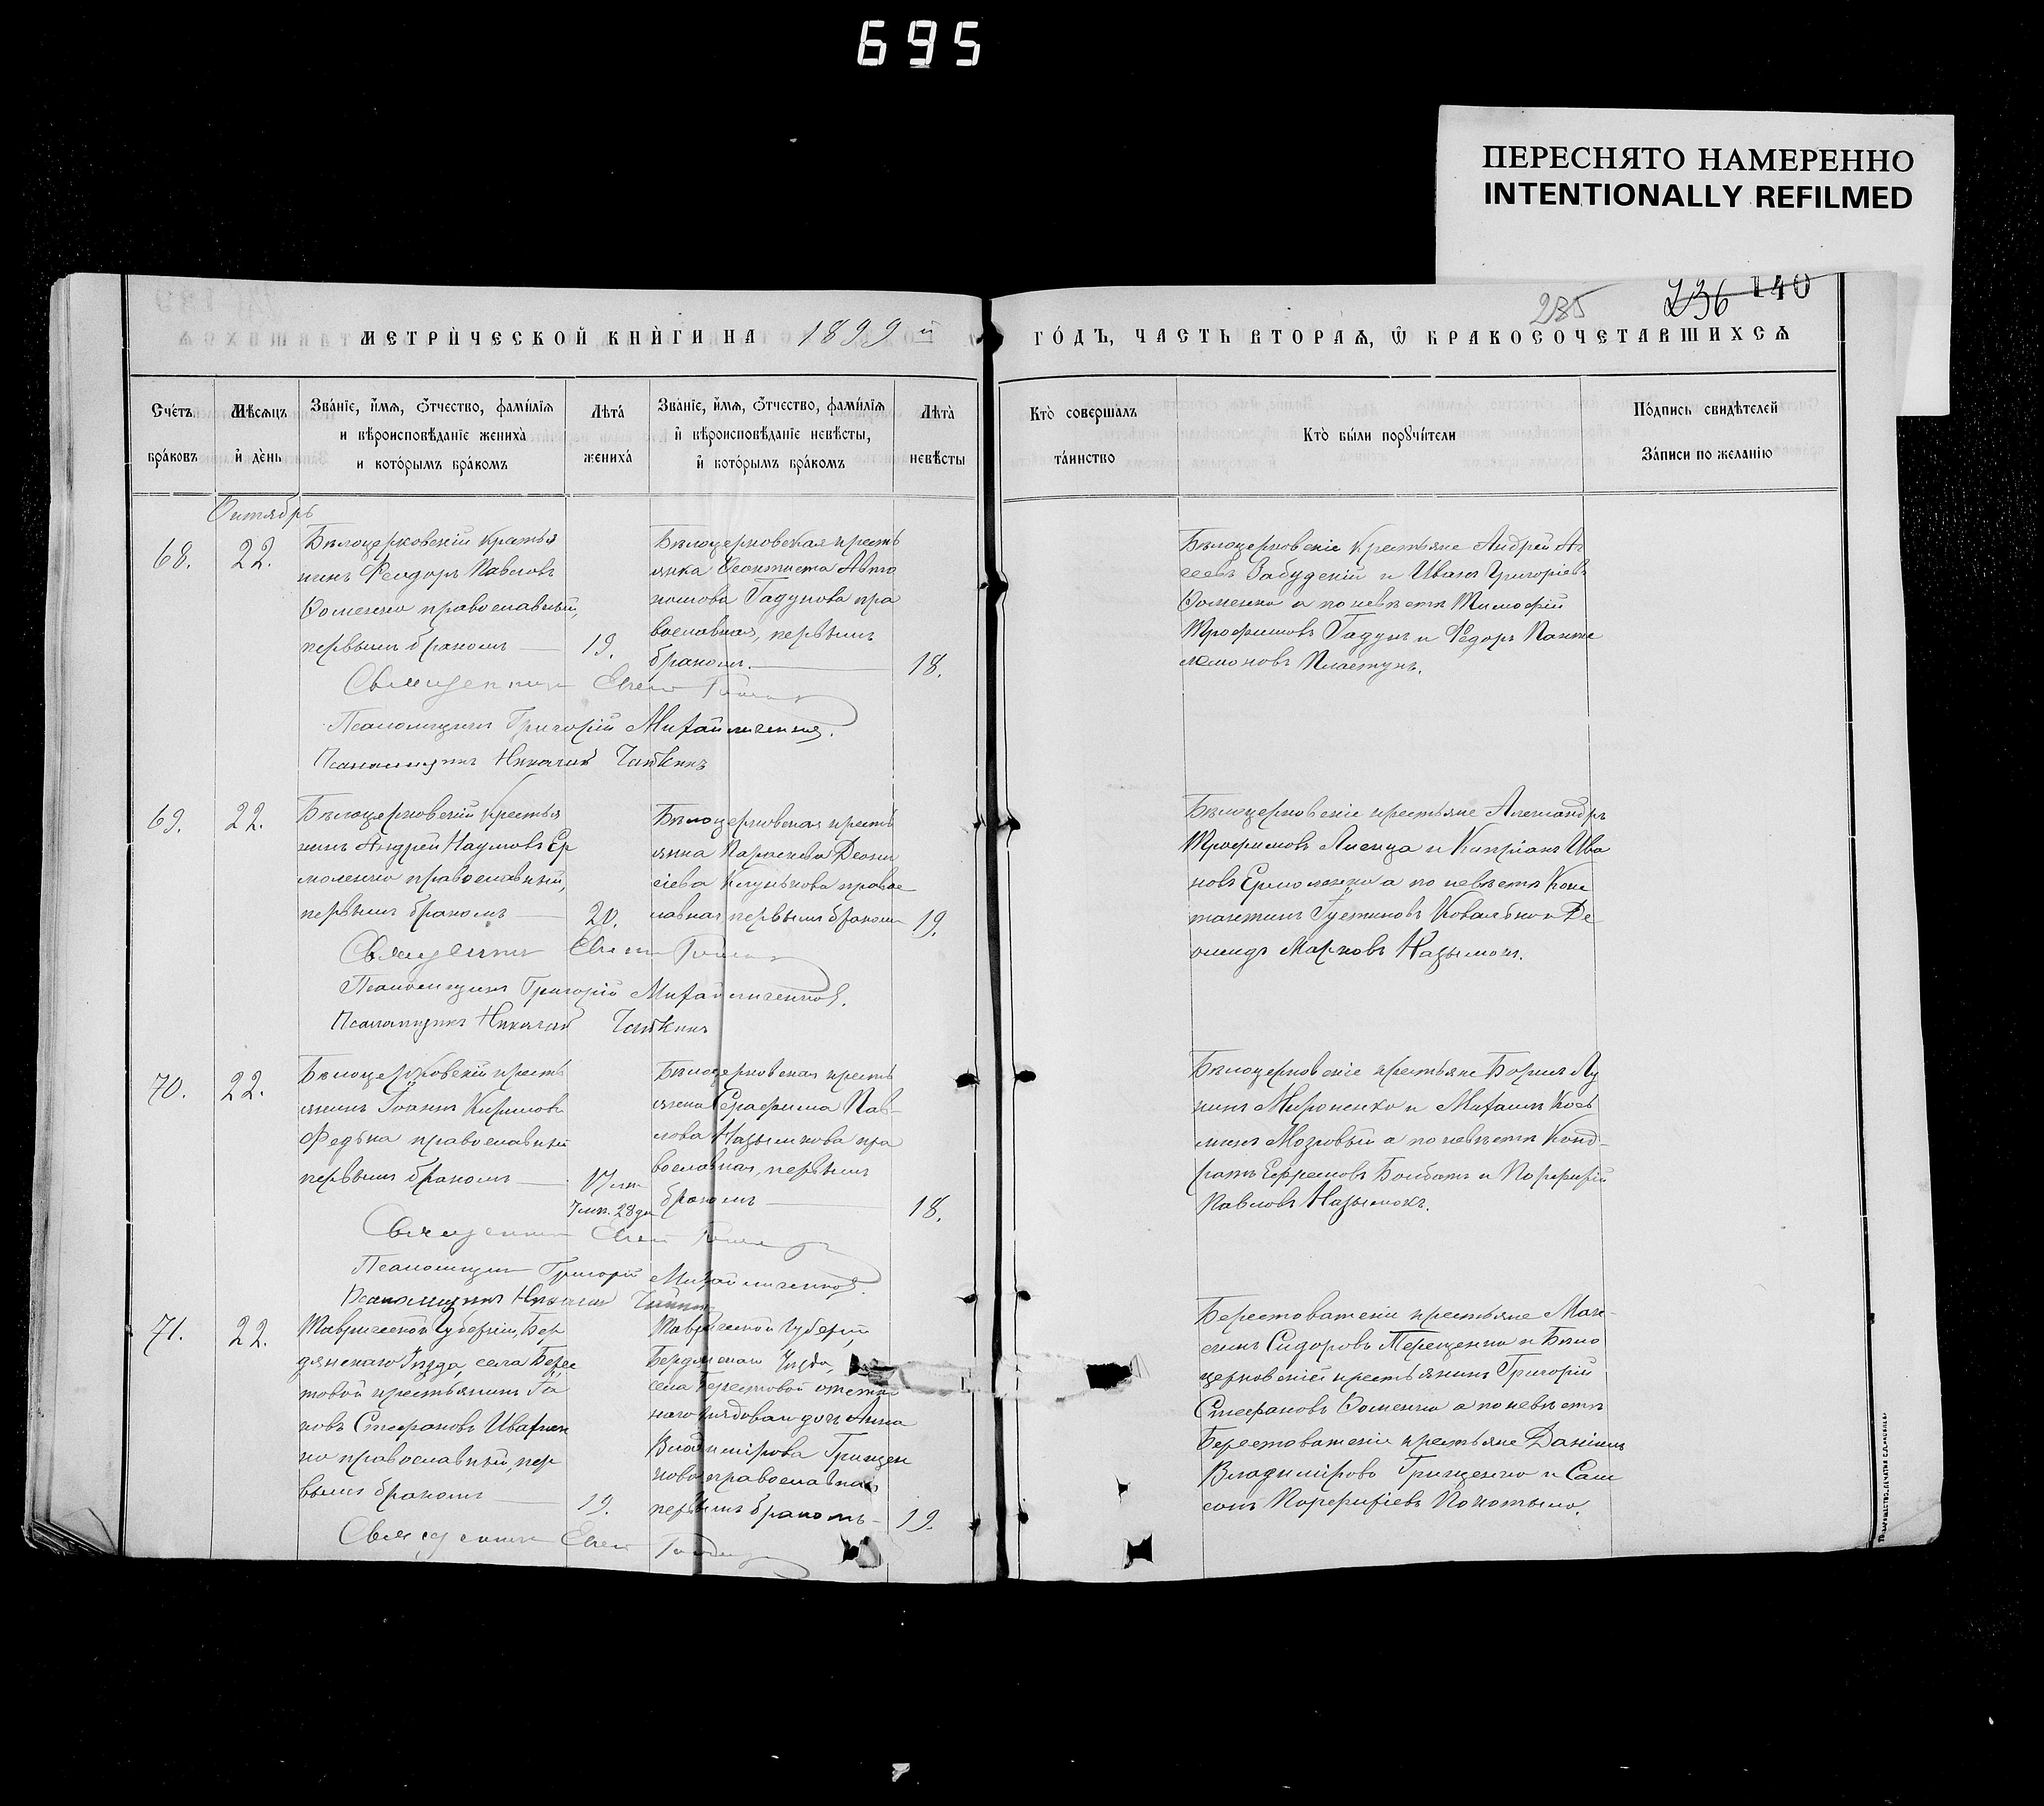 695
ПЕРЕСНЯТО НАМЕРЕННО
INTENTIONALLY REFILMED
285 236 140
МЕТРИ́ЧЕСКОЙ КНИ́ГИ НА 1899 й
ГО́ДЪ, ЧАСТЬ ВТОРАѦ, Ѿ БРАКОСОЧЕТАВШИХСѦ
Сче́тъ бра́ковъ
Мѣ́сяцъ и҆ де́нь
Зва́нїе, и҆́мѧ, ѻ҆́тчество, фами́лїѧ
и вѣроисповѣ́данїе жениха̀
и кото́рымъ бра́комъ
Лѣта̀ жениха̀
Зва́нїе, и҆́мѧ, ѻ҆́тчество, фами́лїѧ
и҆ вѣроисповѣ́данїе невѣ́сты,
и҆ кото́рымъ бра́комъ
Лѣта̀ невѣ́сты
Кто̀ соверша́лъ та́инство
Кто̀ бы́ли порꙋчи́тели
По́дпись свидѣ́телей
За́писи по жела́нїю
Октябрь
68.
22.
Бѣлоцерковскій крестья
нинъ Феодоръ Павловъ
Хоменко православный,
первымъ бракомъ
19.
Бѣлоцерковская кресть
янка Автo
номова Гадунова пра
вославная, первымъ
бракомъ.
18.
Бѣлоцерковскіе крестьяне Андрей
и Иванъ Григоріевъ
Хоменко а по невѣстѣ Тимофій
Трофимовъ Гадунъ и Федоръ Панте
лемоновъ Пластунъ.
Священникъ
Псаломщикъ Григорій Михайличенко.
Псаломщикъ Николай Чайкинъ
69.
22.
Бѣлоцерковскій крестья
нинъ Андрей Наумовъ Ер
моленко православный,
первымъ бракомъ
20.
Бѣлоцерковская кресть
янка Параскева Діони
сіева православ
лавная первымъ бракомъ
19.
Бѣлоцерковскіе крестьяне Александръ
Трофимовъ Лисица и Кипріанъ Ива
новъ Ермоленко а по невѣстѣ Конс
тантинъ Густиновъ Ковалько и Де
омидъ Марковъ Назымокъ.
Священникъ
Псаломщикъ Григорій Михайличенко.
Псаломщикъ Николай Чайкинъ
70.
22.
Бѣлоцерковскій кресть
янинъ Іоаннъ Кириловъ
Федька православный
первымъ бракомъ
17 лѣт
7 мѣс. 28 дн
Бѣлоцерковская кресть
янка Серафима Пав-
лова Назымкова пра
вославная, первымъ
бракомъ
18.
Бѣлоцерковскіе крестьяне Борисъ Лу
кинъ Мироненко и Михаилъ Косъ
минъ Мозговый а по невѣстѣ Конд-
ратъ Ефремовъ и Порфирій
Павловъ Назымокъ.
Священникъ
Псаломщикъ Григорій Михайличенко.
Псаломщикъ Николай Чайкинъ
71.
22.
Таврической Губерніи, Бер
дянскаго Уѣзда, села Берес
товой крестьянинъ Іа
ковъ Стефановъ Ивахнен
ко православный, пер
вымъ бракомъ
19.
Таврической Губерніи,
Бердянскаго Уѣзда,
села Берестовой отстав
наго рядоваго дочь Анна
Владимірова Грищен
кова православная
первымъ бракомъ
19.
Берестоватскіе крестьяне Мак-
симъ Сидоровъ Терещенко и Бѣло
церковскій крестьянинъ Григорій
Стефановъ Хоменко а по невѣстѣ
Берестоватскіе крестьяне Даніилъ
Владиміровъ Грищенко и Сам
сонъ Порфиріевъ Покотыло.
Священникъ